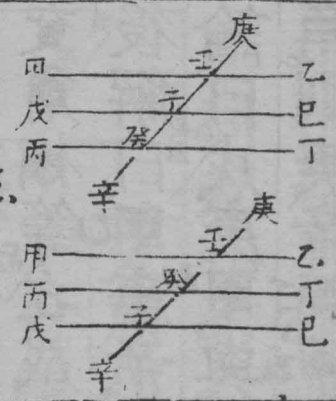 庚
甲 壬 乙
戊 子 巳
丙 癸 丁
辛
庚
甲 壬 乙
丙 癸 丁
戊 子 巳
辛